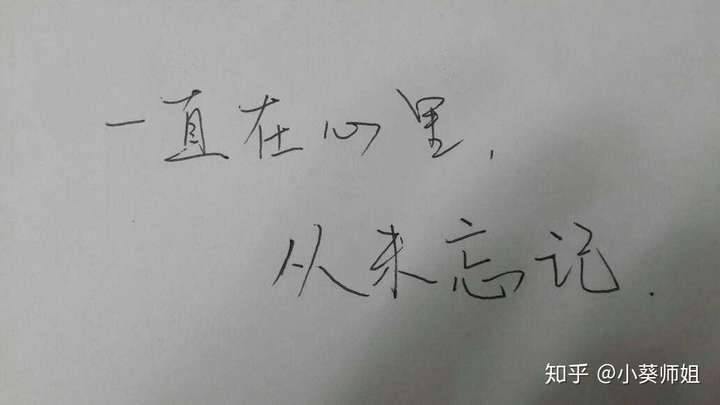 一直在心里,
从未忘记.
知乎 @小葵师姐